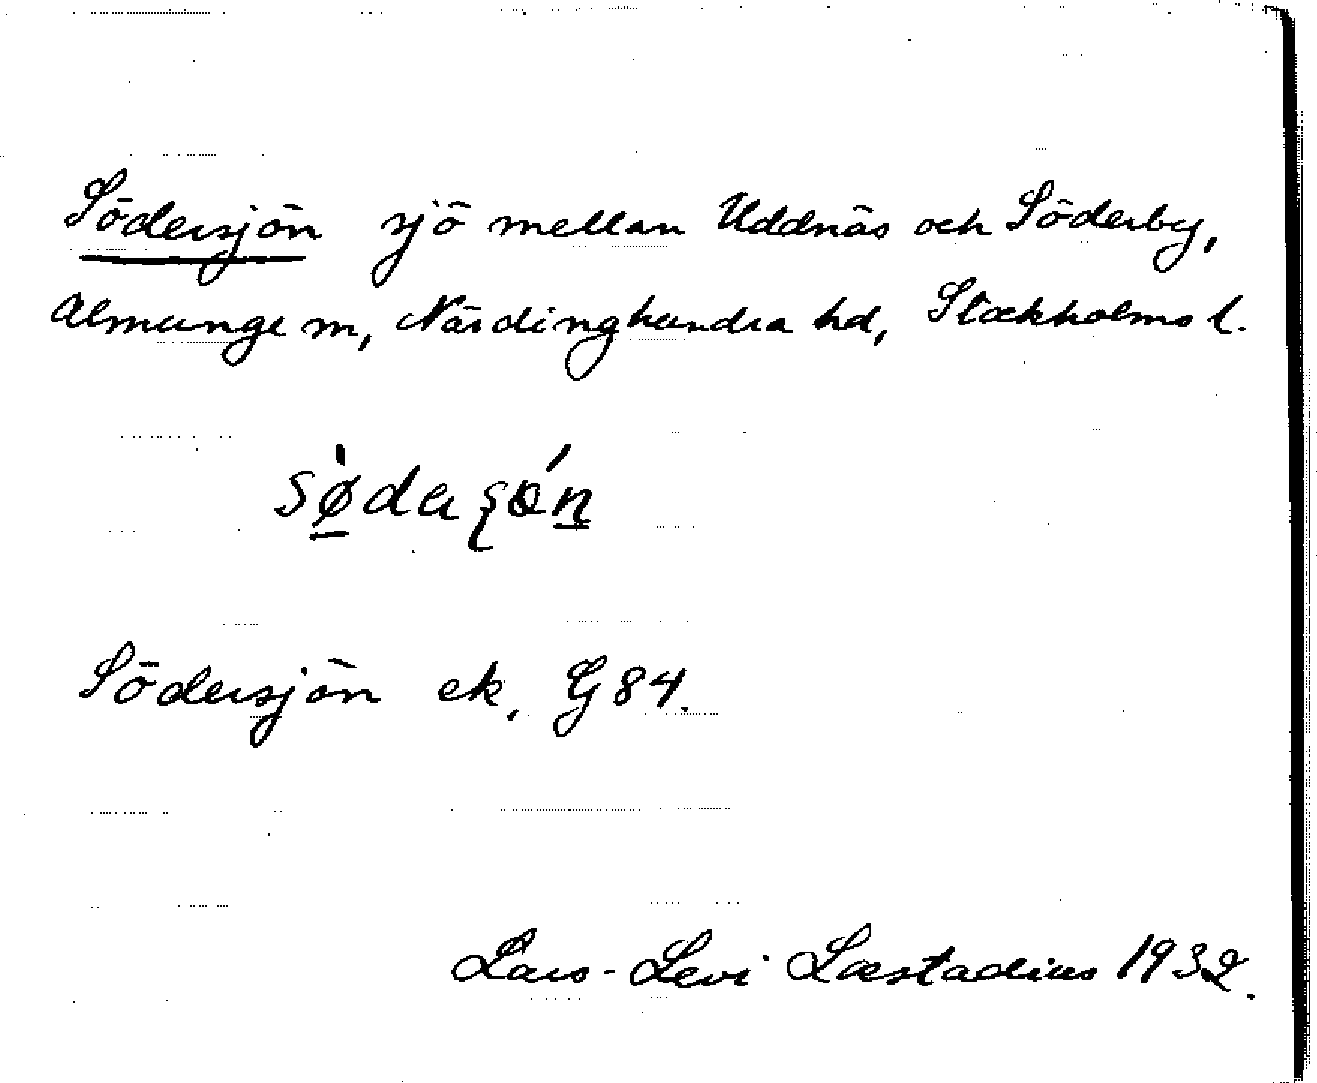 Södersjön sjö mellan Uddnäs och Söderby,
Almunge sn, Närdinghundra hd, Stockholms l.
Södersjön ek, G 84.
Lars-Levi Læstadius 1932.